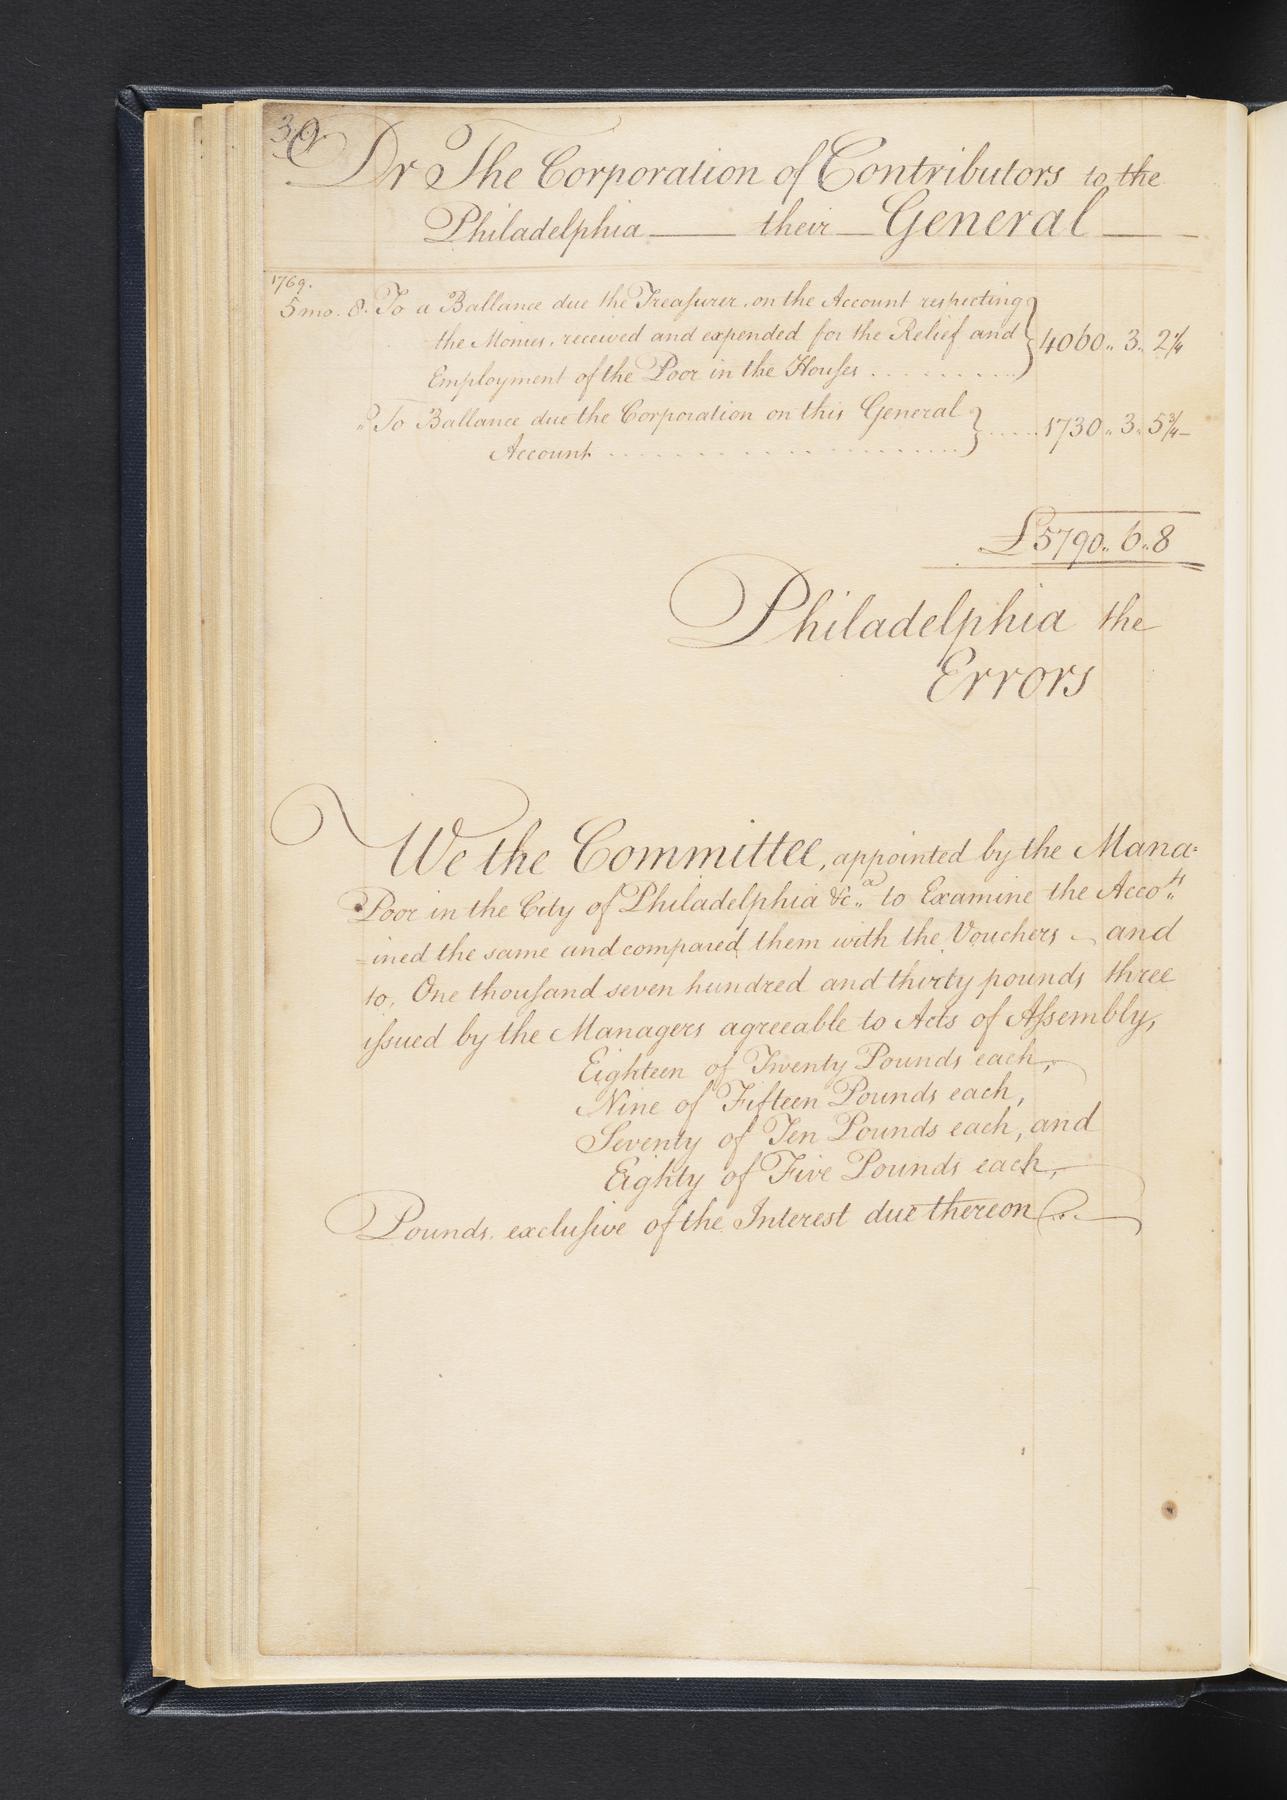 30
Dr The Corporation of Contributors to the
Philadelphia —— their — General —
1769.
5 mo. 8. To a Ballance due the Treasurer, on the Account respecting
the Monies, received and expended for the Relief and 4060.. 3.. 2 1/4
Employment of the Poor in the Houses . . . . . . . . . .
" To Ballance due the Corporation on this General
Account . . . . . . . . . . . . . . . . . . . . . . 1730.. 3.. 5 3/4
£5790.. 6.. 8
Philadelphia the
Errors
We the Committee, appointed by the Mana=
Poor in the City of Philadelphia &c.a to Examine the Acco.ts
=ined the same and compared them with the Vouchers — and
to, One thousand seven hundred and thirty pounds three
issued by the Managers agreeable to Acts of Assembly,
Eighteen of Twenty Pounds each,
Nine of Fifteen Pounds each,
Seventy of Ten Pounds each, and
Eighty of Five Pounds each,
Pounds, exclusive of the Interest due thereon